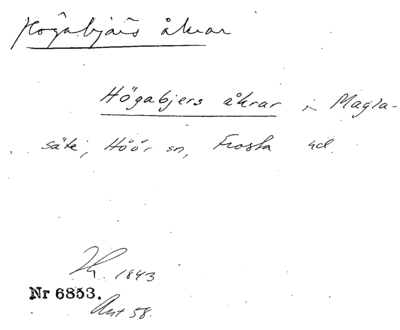 Högabjärs åkrar
Högabjers åkrar i Magla-
säte, Höör sn, Frosta hd.
1843
Nr 6853.
Ant 58.